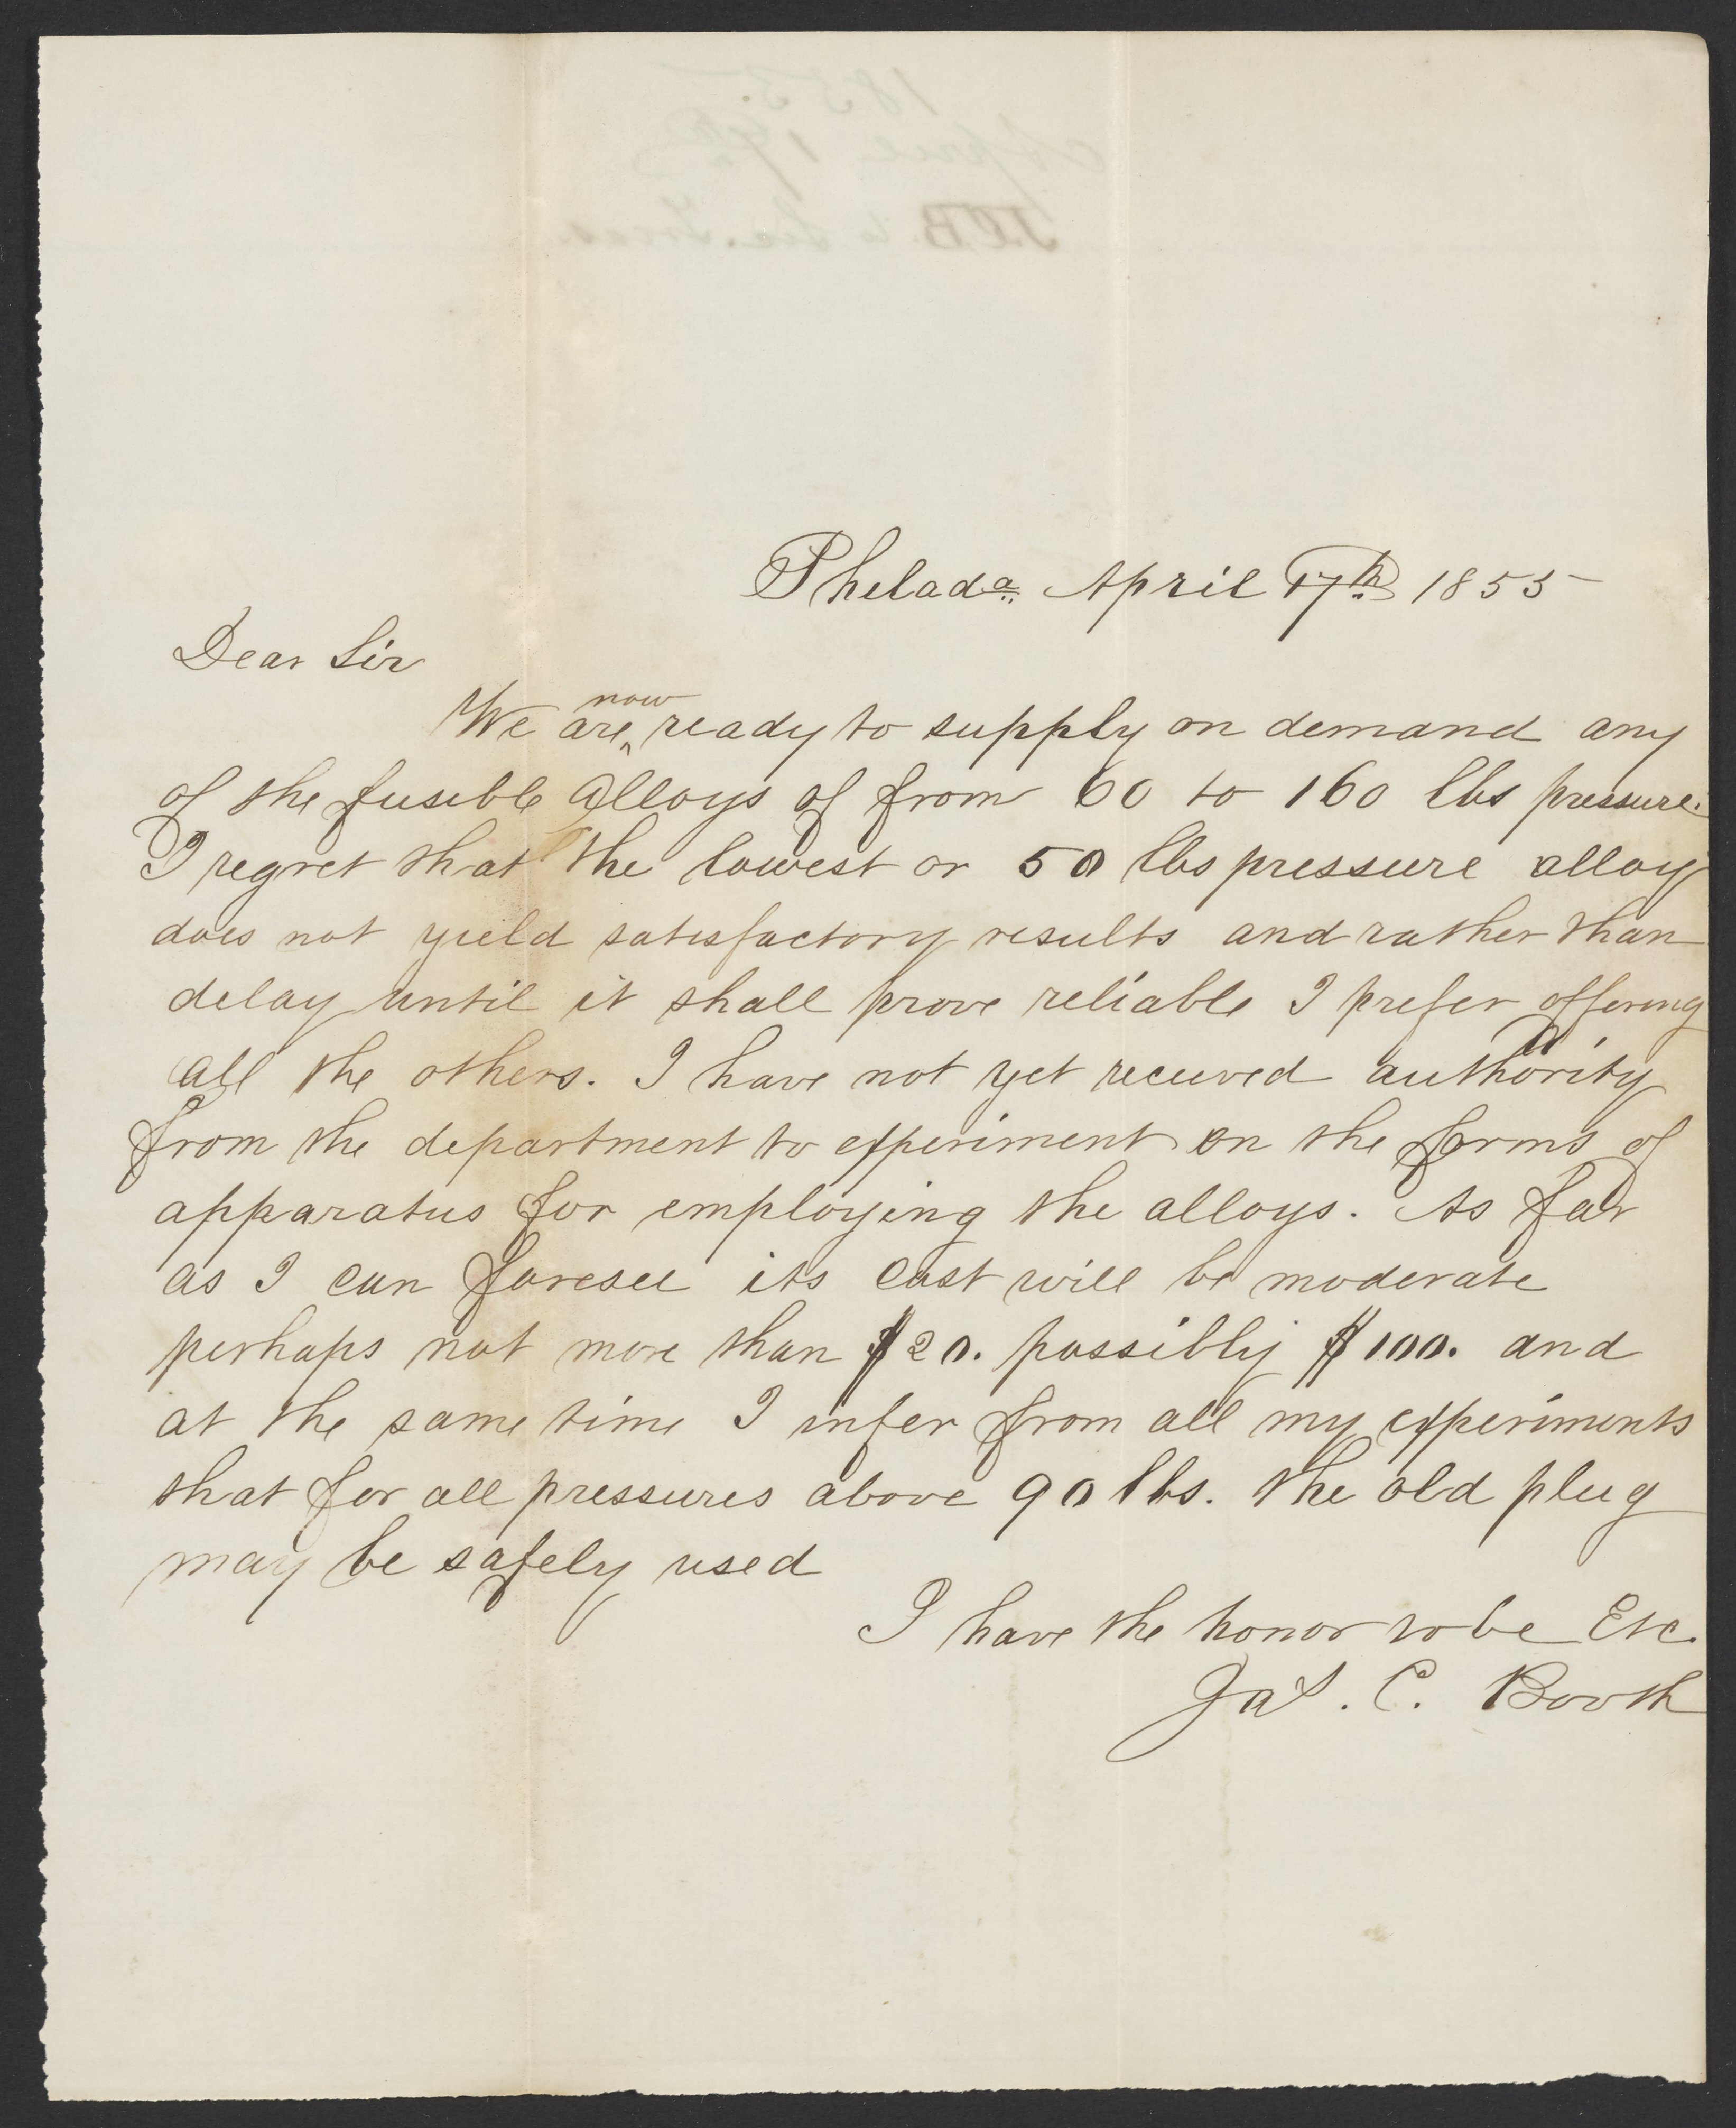 Philada. April 17th 1855
Dear Sir
We are now ready to supply on demand any
of the fusible alloys of from 60 to 160 lbs pressure.
I regret that the lowest or 50 lbs pressure alloy
does not yield satisfactory results and rather than
delay until it shall prove reliable I prefer offering
all the others. I have not yet received authority
from the department to experiment on the forms of
apparatus for employing the alloys. As far
as I can foresee its cost will be moderate
perhaps not more than $20. possibly $100. and
at the same time I infer from all my experiments
that for all pressures above 90 lbs. the old plug
may be safely used
I have the honor to be Etc.
Jas. C. Booth